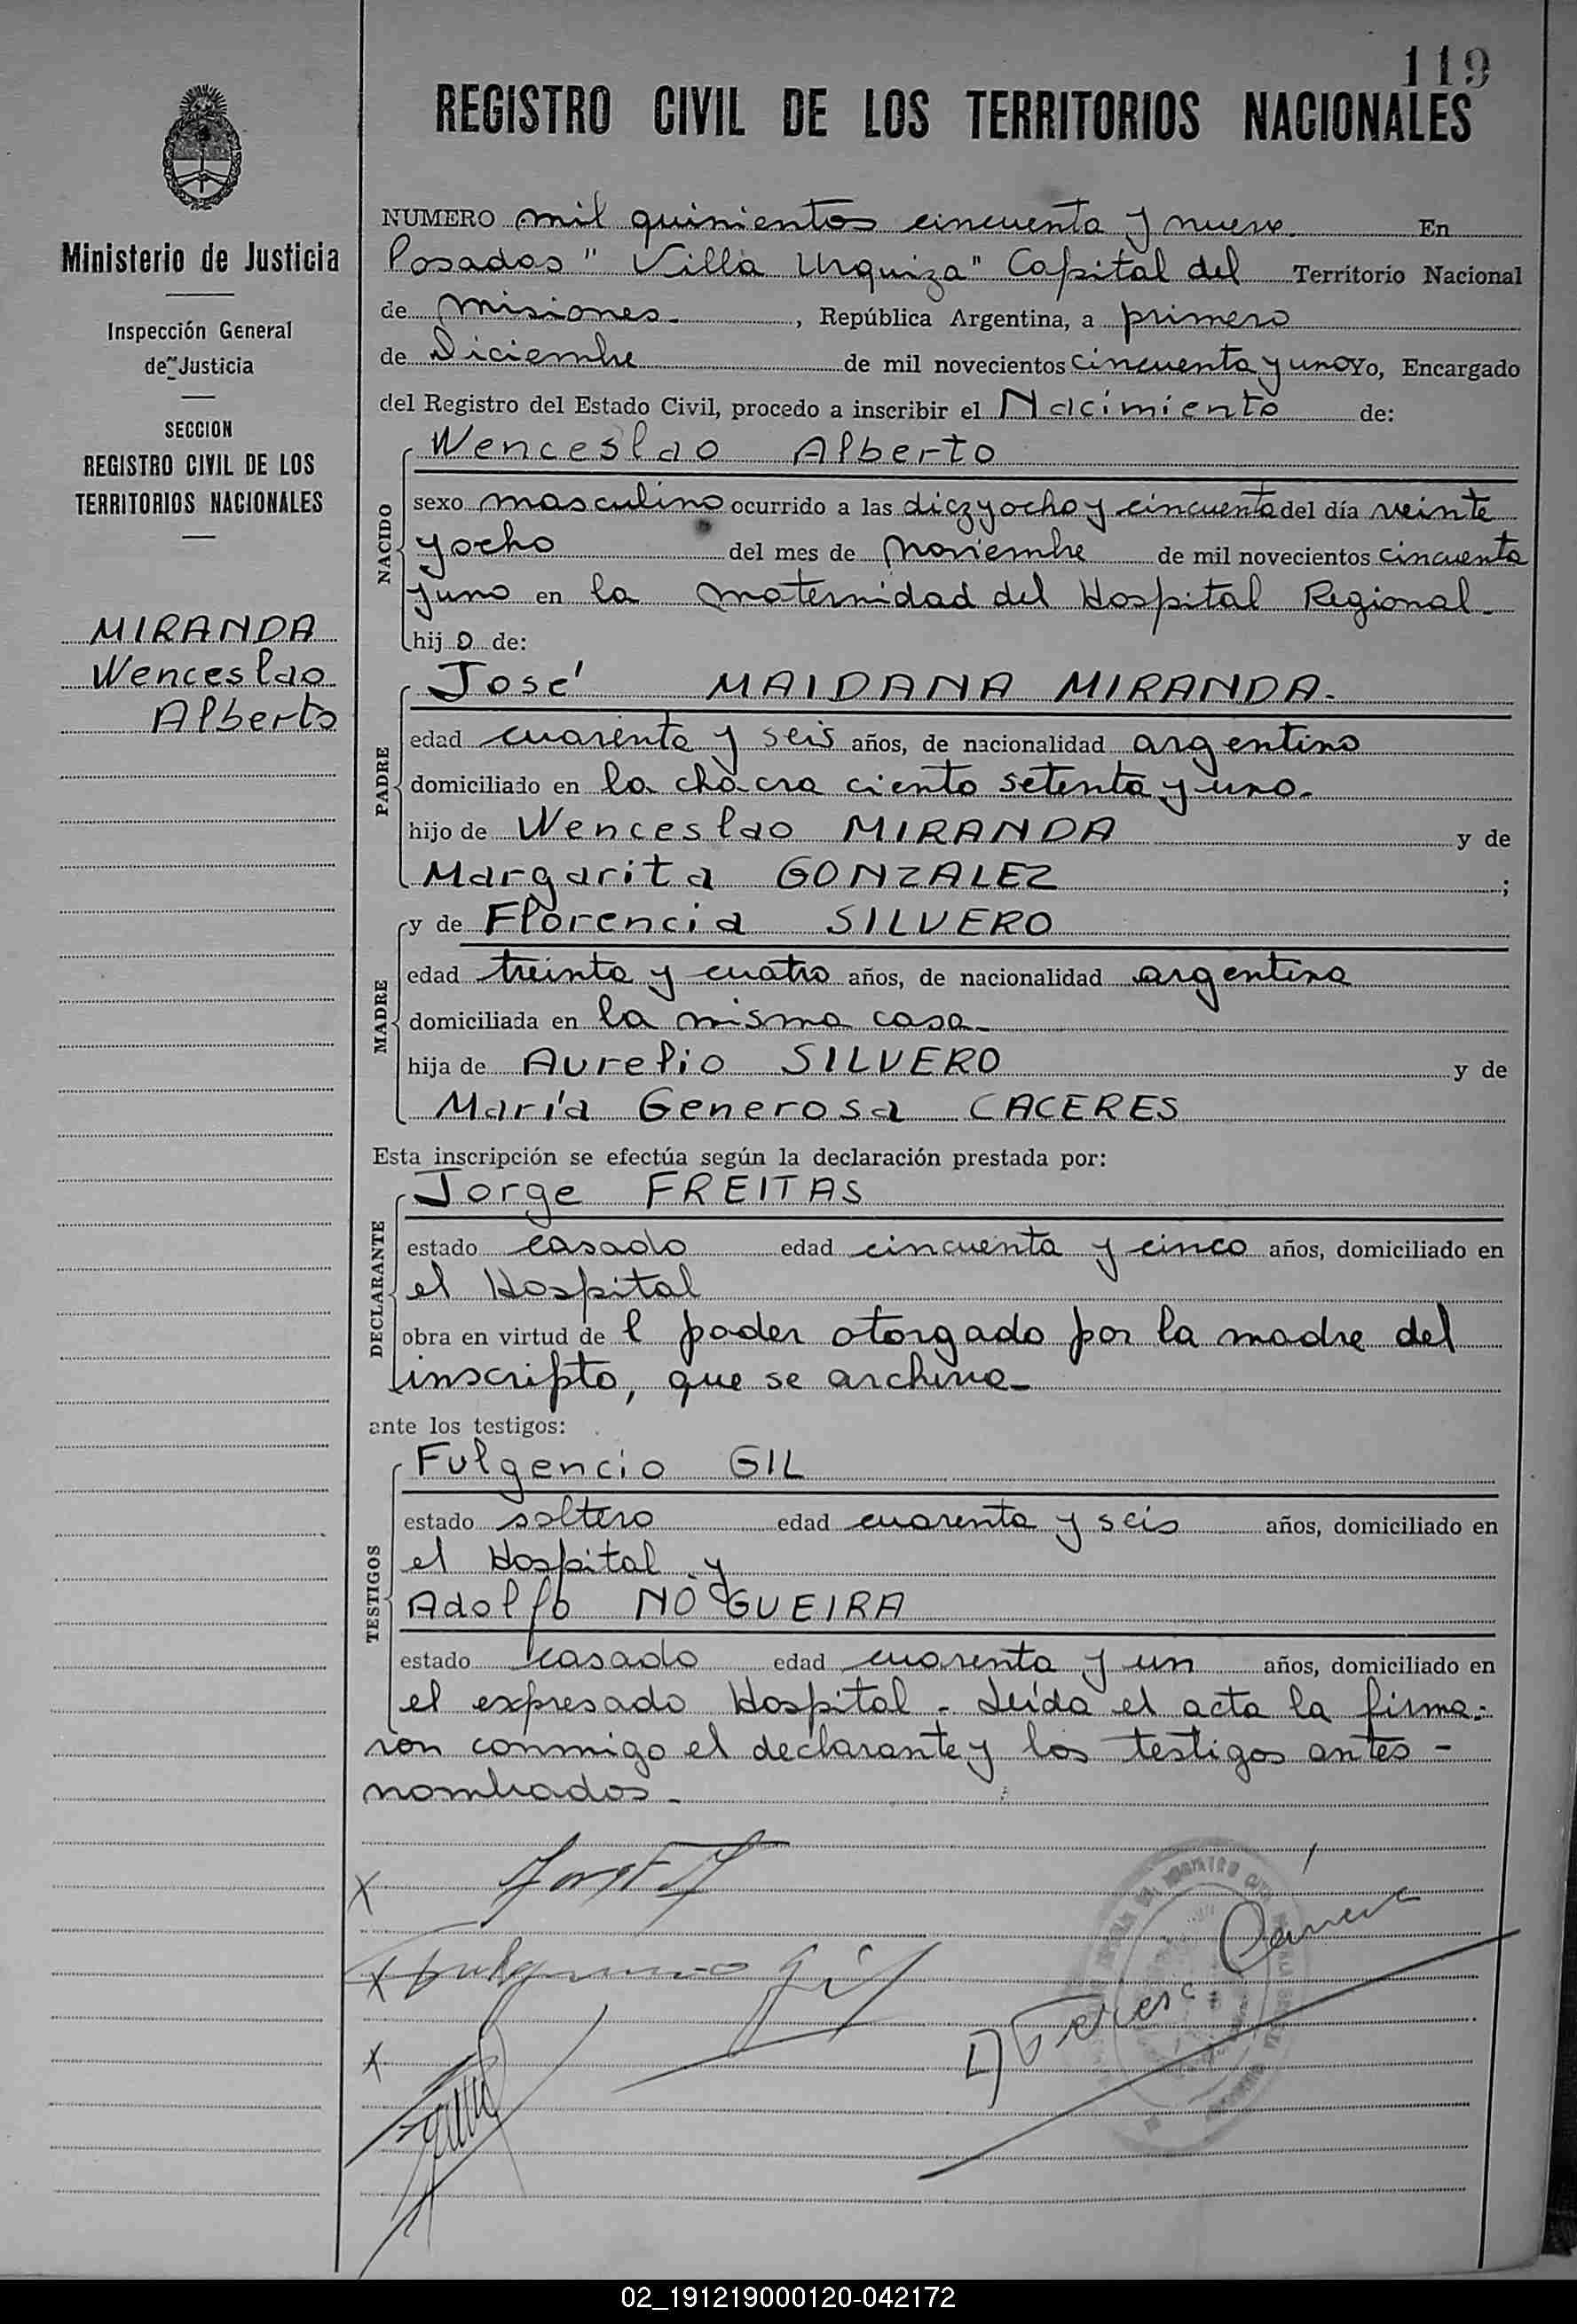 119
REGISTRO CIVIL DE LOS TERRITORIOS NACIONALES
Ministerio de Justicia
Inspección General
de Justicia
SECCION
REGISTRO CIVIL DE LOS
TERRITORIOS NACIONALES
MIRANDA
Wenceslao
Alberto
NUMERO mil quinientos cincuenta y nueve. En
Posadas "Villa Urquiza" Capital del Territorio Nacional
de Misiones. , República Argentina, a primero
de Diciembre de mil novecientos cincuenta y uno Yo, Encargado
del Registro del Estado Civil, procedo a inscribir el Nacimiento de:
NACIDO
Wenceslao Alberto
sexo masculino ocurrido a las diezyocho y cincuenta del día veinte
yocho del mes de Noviembre de mil novecientos cincuenta
yuno en la maternidad del Hospital Regional.
hijo de:
PADRE
José MAIDANA MIRANDA.
edad cuarenta y seis años, de nacionalidad argentino
domiciliado en la chacra ciento setenta y uno.
hijo de Wenceslao MIRANDA y de
Margarita GONZALEZ ;
MADRE
y de Florencia SILVERO
edad treinta y cuatro años, de nacionalidad argentina
domiciliada en la misma casa.
hija de Aurelio SILVERO y de
María Generosa CACERES
Esta inscripción se efectúa según la declaración prestada por:
DECLARANTE
Jorge FREITAS
estado casado edad cincuenta y cinco años, domiciliado en
el Hospital
obra en virtud de l poder otorgado por la madre del
inscripto, que se archiva-
ante los testigos:
TESTIGOS
Fulgencio GIL
estado soltero edad cuarenta y seis años, domiciliado en
el Hospital y
Adolfo NOGUEIRA
estado casado edad cuarenta y un años, domiciliado en
el expresado Hospital - Leída el acta la firma-
ron conmigo el declarante y los testigos antes -
nombrados.
X
X Fulgencio Gil
X
02_191219000120-042172